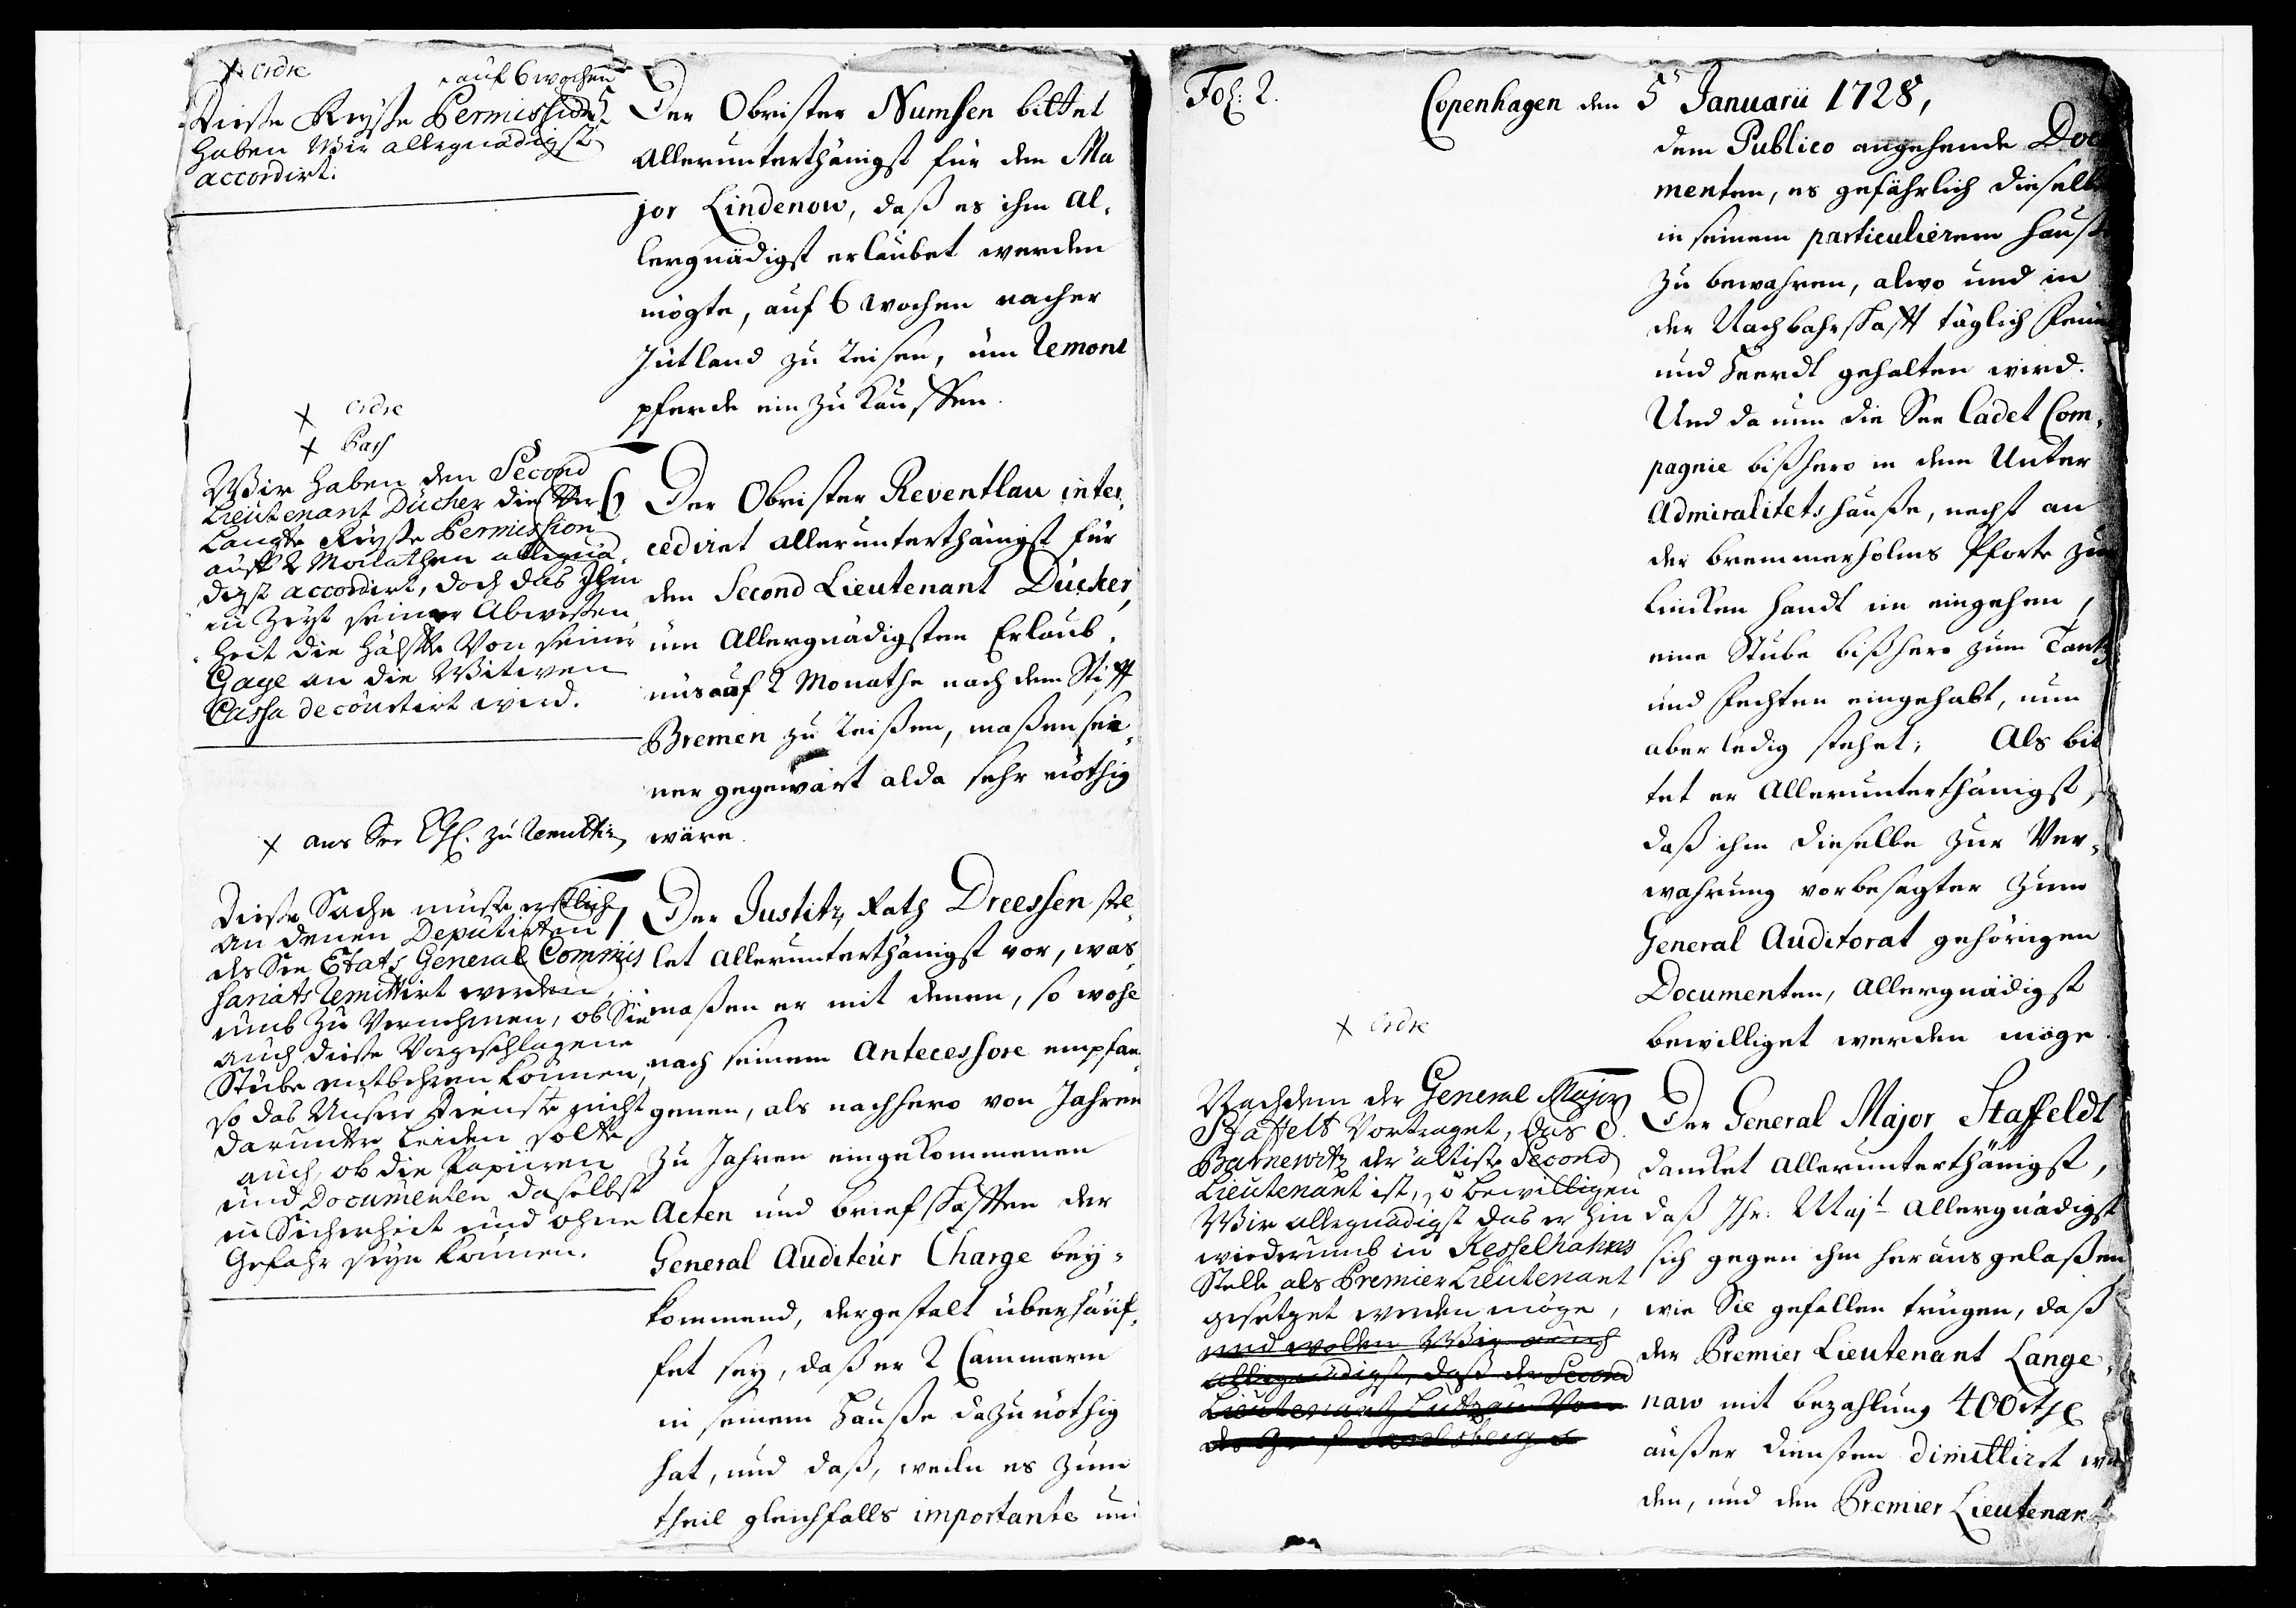 x ordre
auf 6 wochen
Dieße Reyße Permission
haben Wir allergnädigst
accordirt.
5.
Der Obrister Numsen bittet
allerunterthänigst für den Ma
jor Lindenow, daß es ihm al,
lergnädigst erlaubet werden
mögte, auf 6 wochen nacher
Jütland zu reisen, um remont
pferde ein zu kauffen.
x ordre
x Pass
Wir haben den Second
Lieutenant Dücker die Ver
langte Reyße Permission
auff 2 Monathen allergnä
digst accordirt, doch das Ihm
in Zeyt seiner Abweßen,
heit die Hälffte Von seiner
Gage an die Witwen
Cassa decourtirt wird.
6
Der Obrister Reventlau inter,
cediret allerunterthänigst für
den Second Lieutenant Dücker,
um Allergnädigsten Erlaub,
nüs auf 2 Monathe nach dem Stifft
Bremen zu reißen, maßen sei,
ner gegenwart alda sehr nöthig
wäre.
x ans See zu remittir
Dieße Sache muste erstlich
an denen Deputirten
des See Etats General Commis
sariats remittirt werden,
umb zu Vernehmen, ob Sie
auch dieße Vorgeschlagene
Stube entbehren können,
so das Unsere Dienste nicht
darunter leiden solte
auch, ob die Papiren
und Documenten daselbst
in Sicherheit und ohne
Gefahr seyn können.
7
Der Justitz Rath Dreessen stel,
let allerunterthänigst vor, was,
maßen er mit denen, so wohl
nach seinem Antecessore empfan,
genen, als nachhero von Jahren
zu Jahren eingekommenen
Acten und briefschafften der
General Auditeur Charge bey,
kommend, dergestalt überhäuf,
fet sey, daß er 2 Cammern
in seinem Hauße dazu nöthig
hat, und daß, weiln es zum
theil gleichfalls importante und
Fol: 2.
Copenhagen den 5 Januarii 1728,
dem Publico angehende Docu
menten, es gefährlich dieselbe
in seinem particulierem Hause
zu bewahren, alwo und in
der Nachbahrschafft täglich Feur
und Heerdt gehalten wird.
Und da nun die See Cadet Com,
pagnie bißhero in dem Unter
Admiralitets hauße, nechst an
der bremmerholms Pforte zur
lincken handt im eingehen,
eine Stube bißhero zum Tantz
und fechten eingehabt, nun
aber ledig stehet; Als bit
tet er Allerunterthänigst,
daß ihm dieselbe zur Ver,
wahrung vorbesagter zum
General Auditorat gehörigen
Documenten, Allergnädigst
bewilliget werden möge.
x ordre
Nachdem der General Major
Staffelt Vortraget, das
Barnewitz der ältiste Second
Lieutenant ist, so bewilligen
Wir allergnädigst das er hin
wiederumb in Kesselhahns
Stelle als Premier Lieutenant
gesetzet werden möge,
und wollen Wir auch
allergnädigst, daß der Second
Lieutenant Lützau Von
8.
Der General Major Staffeldt
dancket allerunterthänigst,
daß Ihr. Majt allergnädigst
sich gegen ihm heraus gelaßen
wie Sie gefallen trügen, daß
der Premier Lieutenant Lange,
naw mit bezahlung 400 rthl
außer diensten dimittiret wer
den, und den Premier Lieutenant